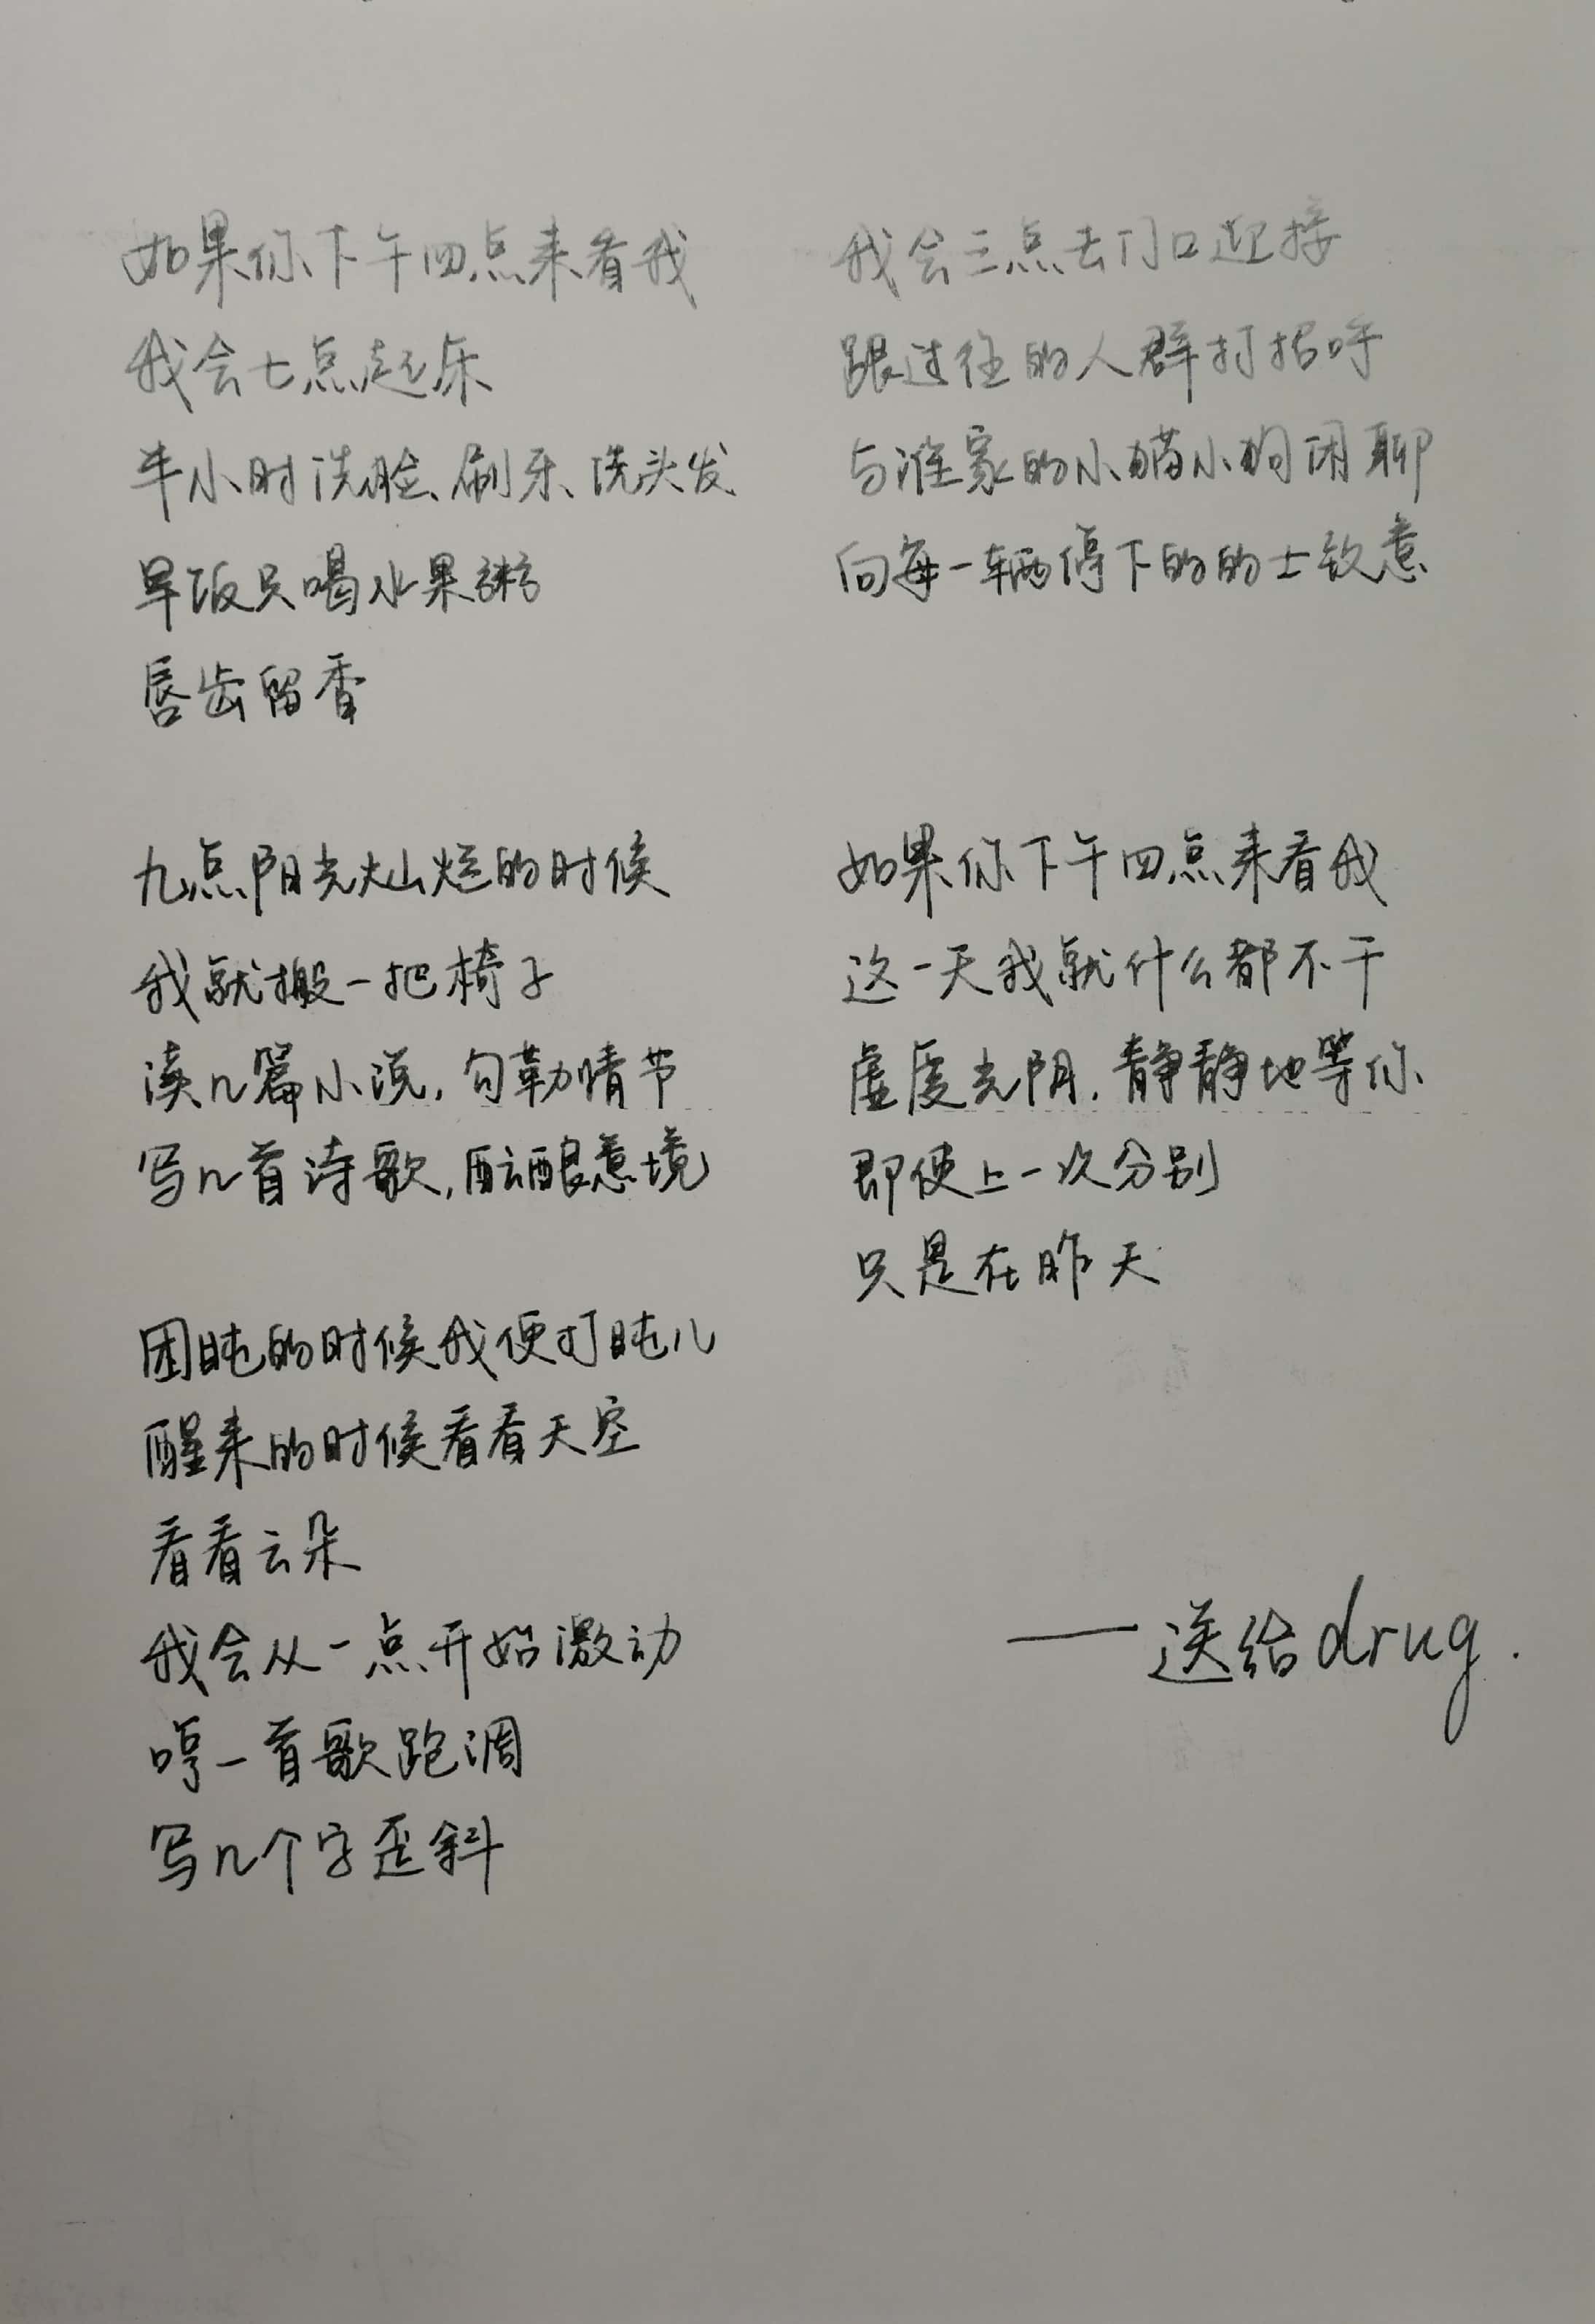 如果你下午四点来看我
我会七点起床
半小时洗脸、刷牙、洗头发
早饭只喝水果粥
唇齿留香
九点阳光灿烂的时候
我就搬一把椅子
读几篇小说,勾勒情节
写几首诗歌,酝酿意境
困盹的时候我便打盹儿
醒来的时候看看天空
看看云朵
我会从一点开始激动
哼一首歌跑调
写几个字歪斜
我会三点去门口迎接
跟过往的人群打招呼
与谁家的小猫小狗闲聊
向每一辆停下的的士致意
如果你下午四点来看我
这一天我就什么都不干
虚度光阴,静静地等你
即使上一次分别
只是在昨天
——送给drug.